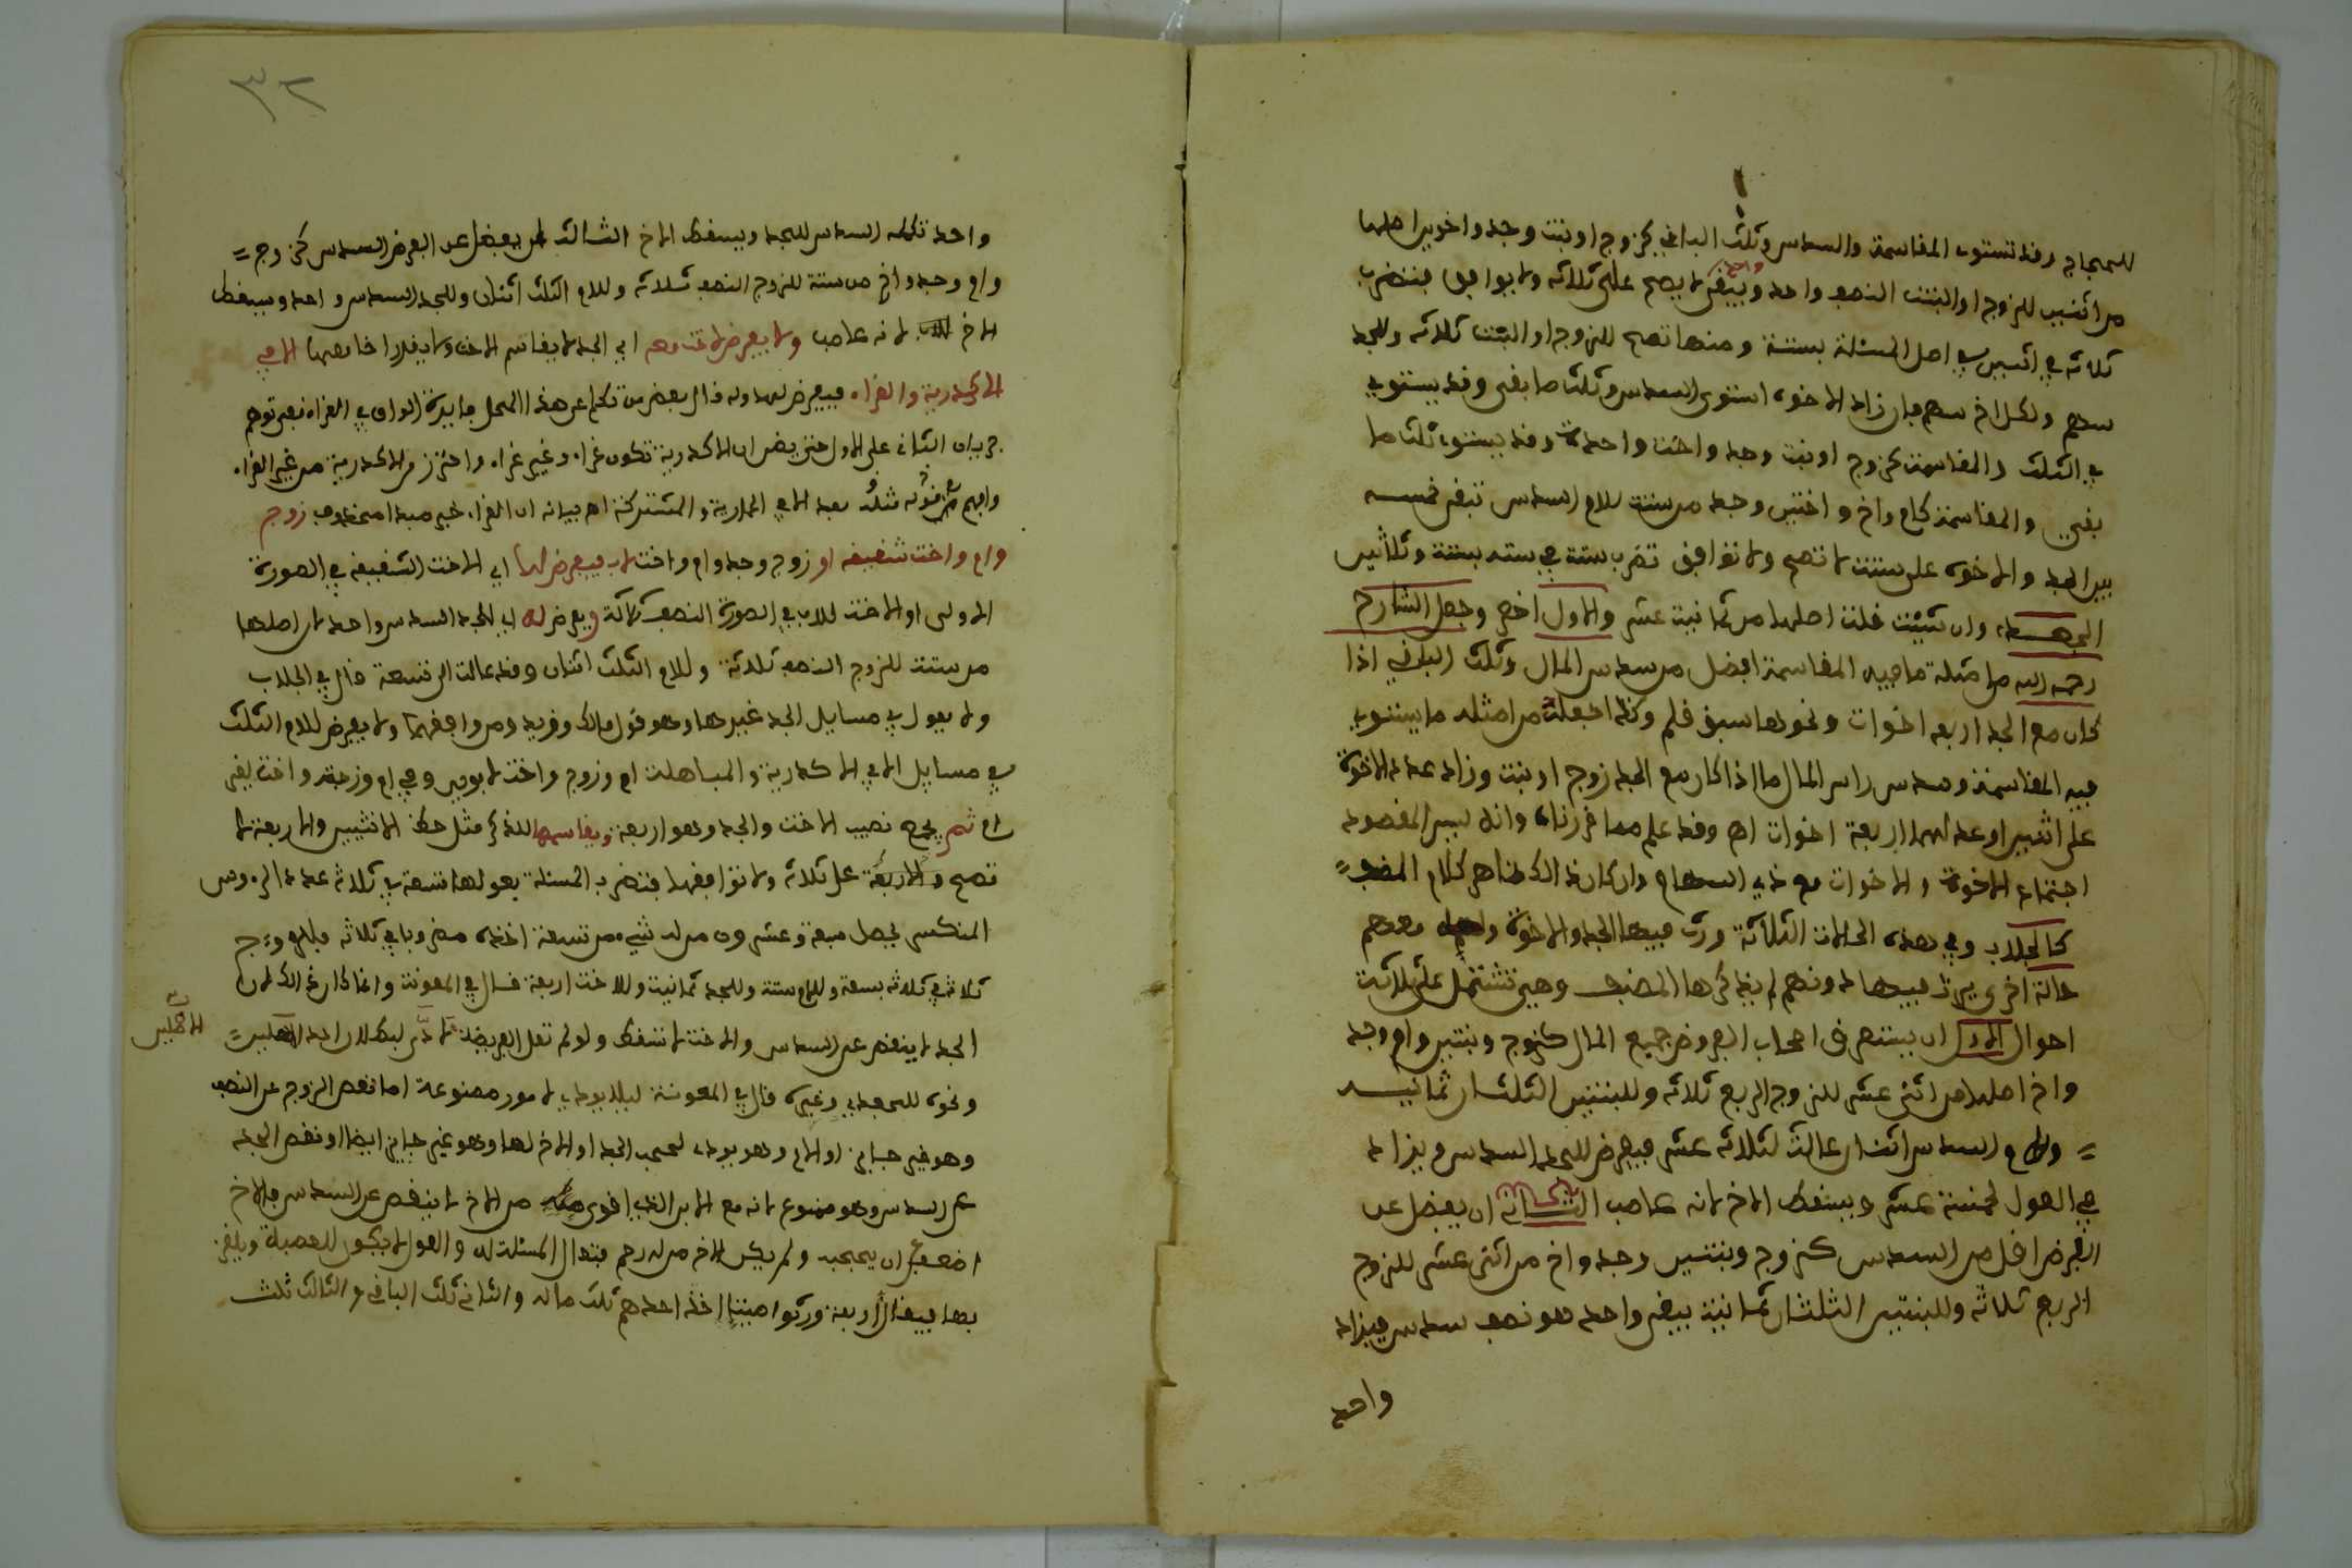 للحجاج وقد تستوي المقاسمة والسدس وثلث الباقي كزوج او بنت وجد واخوين اصلها
من اثنين للزوج او البنت النصف واحد ويبقى واحد لا يصح على ثلاثة ولا يوافق فتضرب
ثلاثة في اثنين اصل المسئلة بستة ومنها تصح للزوج او البنت ثلاثة وللجد
سهم ولكل اخ سهم فان زاد الاخوة استوى السدس وثلث ما بقي وقد يستوي
في الثلث والمقاسمة كزوج او بنت وجد واخت واحدة وقد يستوي ثلث ما
بقي والمقاسمة كام واخ واختين وجد من ستة للام السدس تبقى خمسه
بين الجد والاخوة على ستة لا تصح ولا توافق تضرب ستة في ستة بستة وثلاثين
وان شئت قلت اصلها من ثمانية عشر والاول اخص وجعل الشارح
رحمه الله من امثلة ما فيه المقاسمة افضل من سدس المال وثلث الباقي اذا
كان مع الجد اربعه اخوات ونحوها سبق قلم وكذا جعله من امثلة ما يستوي
فيه المقاسمة وسدس راس المال ما اذا كان مع الجد زوج او بنت وزاد عدد الاخوة
على اثنين او عدلهما اربعة اخوات اهـ وقد علم مما قررناه وانه ليس المقصود
اجتماع الاخوة والاخوات مع ذي السهام وان كان ذلك ظاهر كلام المصنف
كالجلاب وفي هذه الحالات الثلاثة ورث فيها الجد والاخوة معهم
حالة اخرى يرث فيها دونهم لم يذكرها المصنف وهي تشتمل على ثلاثة
احوال الاول ان يستغرق اصحاب الفروض جميع المال كزوج وبنتين وام وجد
واخ اصلها من اثني عشر للزوج الربع ثلاثة وللبنتين الثلثان ثمانيه
وللام السدس اثنان عالت لثلاثة عشر فيفرض للجد السدس ويزاد
في العول لخمسة عشر ويسقط الاخ لانه عاصب الثاني ان يفضل عن
الفرض اقل من السدس كزوج وبنتين وجد واخ من اثني عشر للزوج
الربع ثلاثة وللبنتين الثلثان ثمانية يبقى واحد هو نصف سدس فيزاد
واحد
٣٢
واحد تكملة السدس للجد ويسقط الاخ الثالث ان يفضل عن الفرض السدس كزوج
وام وجد واخ من ستة للزوج النصف ثلاثة وللام الثلث اثنان وللجد السدس واحد ويسقط
الاخ لانه عاصب ولا يفرض لاخت معه اي الجد لا يقاسم الاخت ولا يفرد اختا معها الا في
الاكدرية والغراء فيفرض لها وله قال بعض من تكلم على هذا المحل فايدة الواو في الغراء نفي توهم
جريان الثاني على الاول حتى يظن ان الاكدرية تكون غراء وغير غراء واحترز من الاكدرية من غير الغراء
بعد الا في الحمارية والمشتركة اهـ بيانه ان الغراء خبر مبتدا محذوف زوج
وام واخت شقيقه او زوج وجد وام واخت لاب فيفرض لها اي الاخت الشقيقه في الصورة
الاولى او الاخت للاب في الصورة النصف ثلاثة ويفرض له اي للجد السدس واحد لان اصلها
من ستة للزوج النصف ثلاثة وللام الثلث اثنان وقد عالت الى تسعة قال في الجلاب
ولا يعول في مسايل الجد غيرها وهو قول مالك وزيد ومن وافقهما ولا يفرض للام الثلث
في مسايل الا في الاكدرية والمباهلة ام وزوج واخت لابوين وفي ام وزوجة واخت لغير
ام ثم يجمع نصيب الاخت والجد وهو اربعة ويقاسمها للذكر مثل حظ الانثيين والاربعة لا
تصح على ثلاثة ولا توافقها فتضرب المسئلة بعولها تسعة في ثلاثة عدد الرءوس
المنكسر يحصل سبعة وعشرون من له شيء من تسعة اخذه مضروبا في ثلاثة فللزوج
ثلاثة في ثلاثة بتسعة وللام ستة وللجد ثمانية وللاخت اربعة قال في المعونة وانما كان ذلك لان
الجد لا ينقص عن السدس والاخت لا تسقط ولو لم تعل الفريضة لادى لبطلان احد الاصلين
الاصلين
ونحوه للجعدي وغيره قال في المعونة ليلا يودي لامور ممنوعة اما نقص الزوج عن النصف
وهو غير جايز او الام وهو يودي لحجب الجد او الاخ لها وهو غير جايز ايضا او نقص الجد
عن السدس وهو ممنوع لانه مع الابن الذي اقوى من الاخ لا ينقص عن السدس فالاخ
اضعف ان يحجبه ولم يكن للاخر من له رحم فتعال المسئلة له والعول لا يكون للعصبة ويلغز
بها فيقال اربعة ورثوا ميتا اخذ احدهم ثلث ماله والثاني ثلث الباقي والثالث ثلث